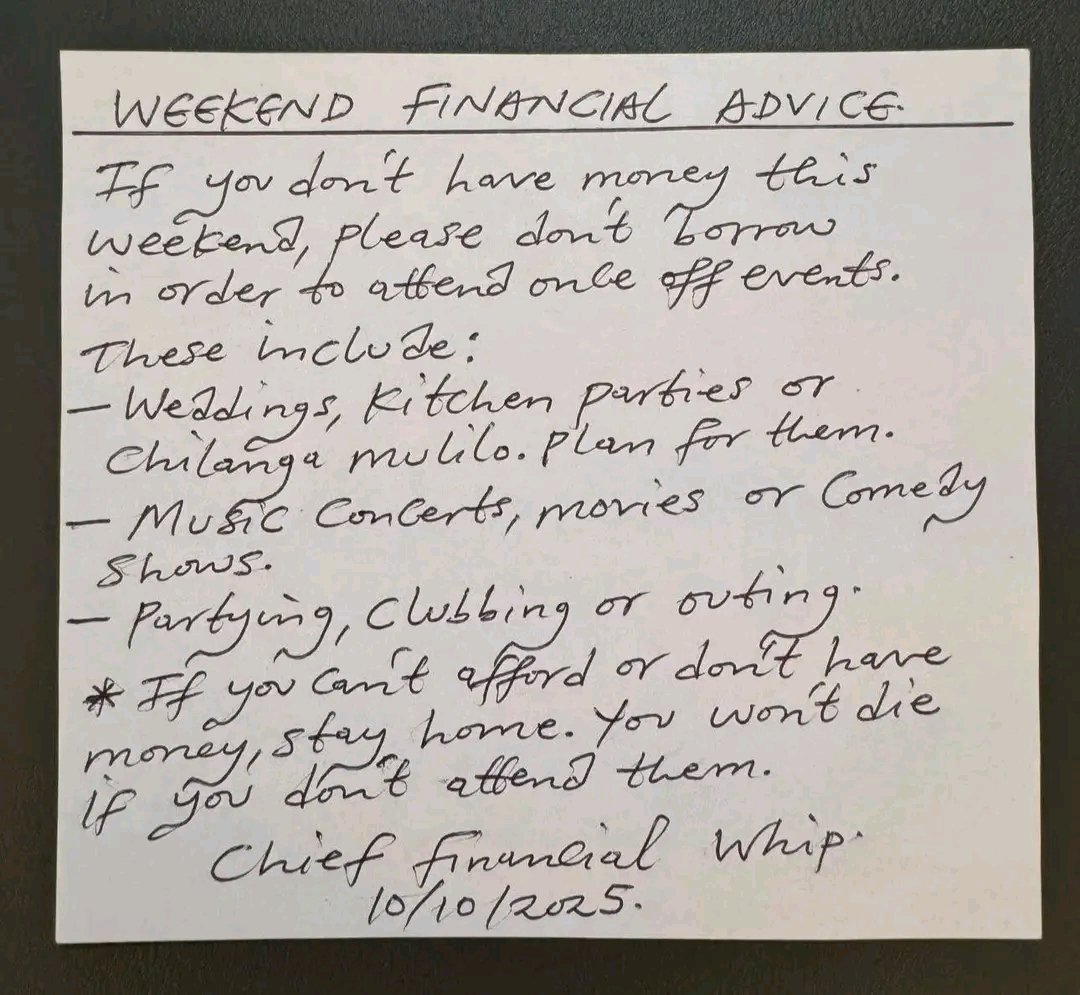 WEEKEND FINANCIAL ADVICE.
If you don't have money this
weekend, please don't borrow
in order to attend once off events.
These include:
- Weddings, Kitchen parties or
Chilanga mulilo. Plan for them.
- Music Concerts, movies or Comedy
shows.
- Partying, Clubbing or outing.
* If you can't afford or don't have
money, stay home. You won't die
if you don't attend them.
Chief Financial Whip.
10/10/2025.